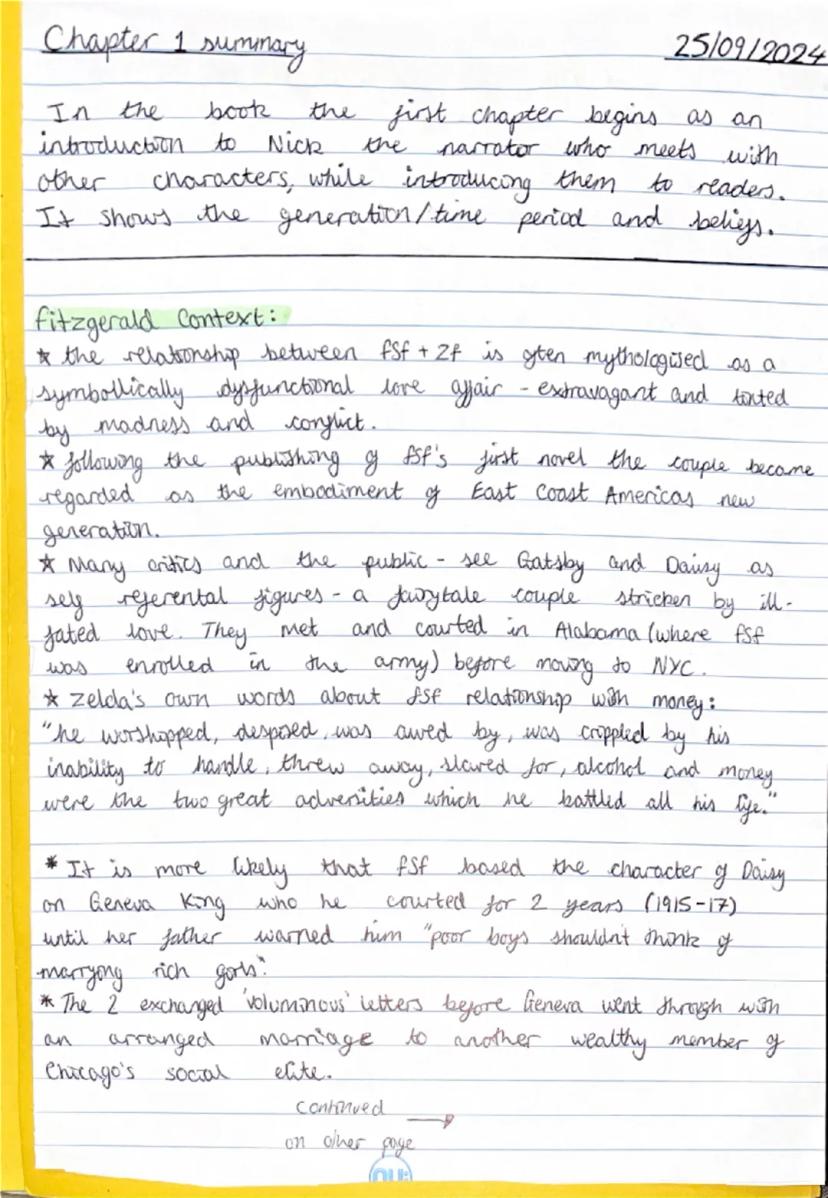 Chapter 1 summary 25/09/2024
In the book the first chapter begins as an
introduction to Nick the narrator who meets with
other characters, while introducing them to readers.
It shows the generation/time period and beliefs.
fitzgerald Context:
* the relationship between fsf + Zf is often mythologised as a
symbollically dysfunctional love affair - extravagant and tinted
by madness and conflict.
* following the publishing of fsf's first novel the couple became
regarded as the embodiment of East Coast Americas new
generation.
* Many critics and the public - see Gatsby and Daisy as
self referental figures - a fairytale couple stricken by ill-
fated love. They met and courted in Alabama (where fsf
was enrolled in the army) before moving to NYC.
* Zelda's own words about fsf relationship with money:
"he worshopped, despised, was awed by, was crippled by his
inability to handle, threw away, slaved for, alcohol and money
were the two great adversities which he battled all his life."
* It is more likely that fsf based the character of Daisy
on Geneva King who he courted for 2 years (1915-17)
until her father warned him "poor boys shouldn't think of
marrying rich girls".
* The 2 exchanged 'voluminous' letters before Geneva went through with
an arranged marriage to another wealthy member of
Chicago's social elite.
continued →
on other page